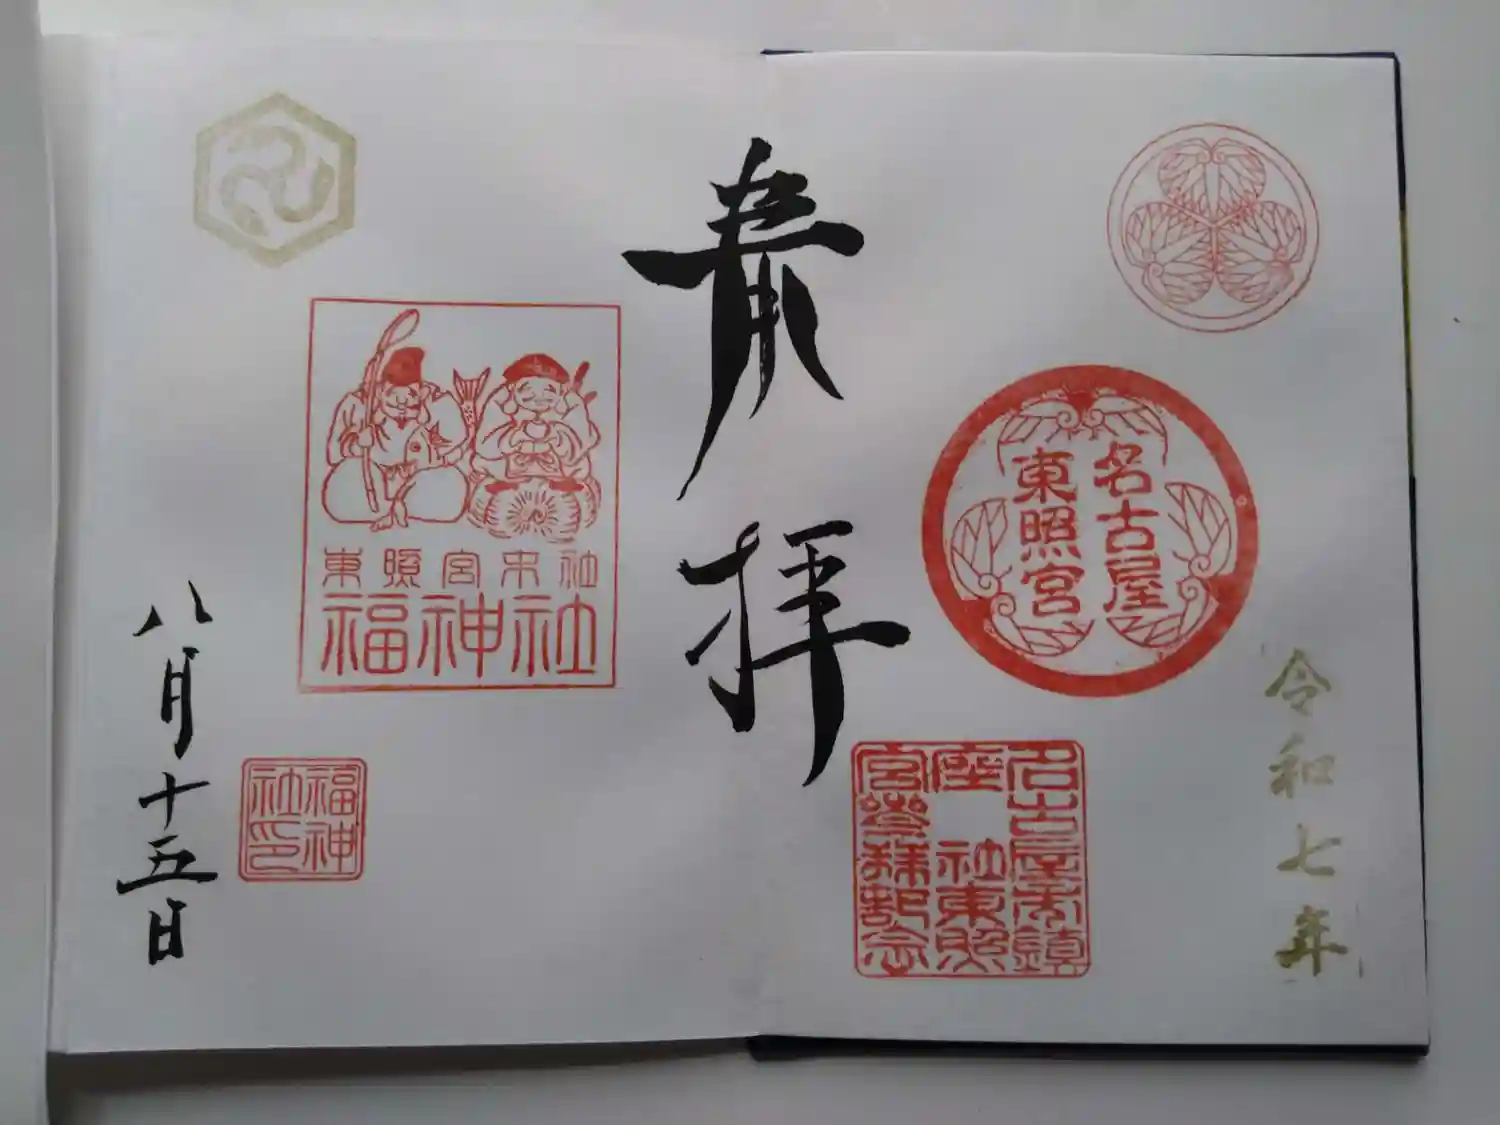 名古屋
東照宮
令和七年
名古屋市鎮
座 社東照
宮參拜記念
奉拝
東照宮末社
福神社
福神
社印
八月十五日